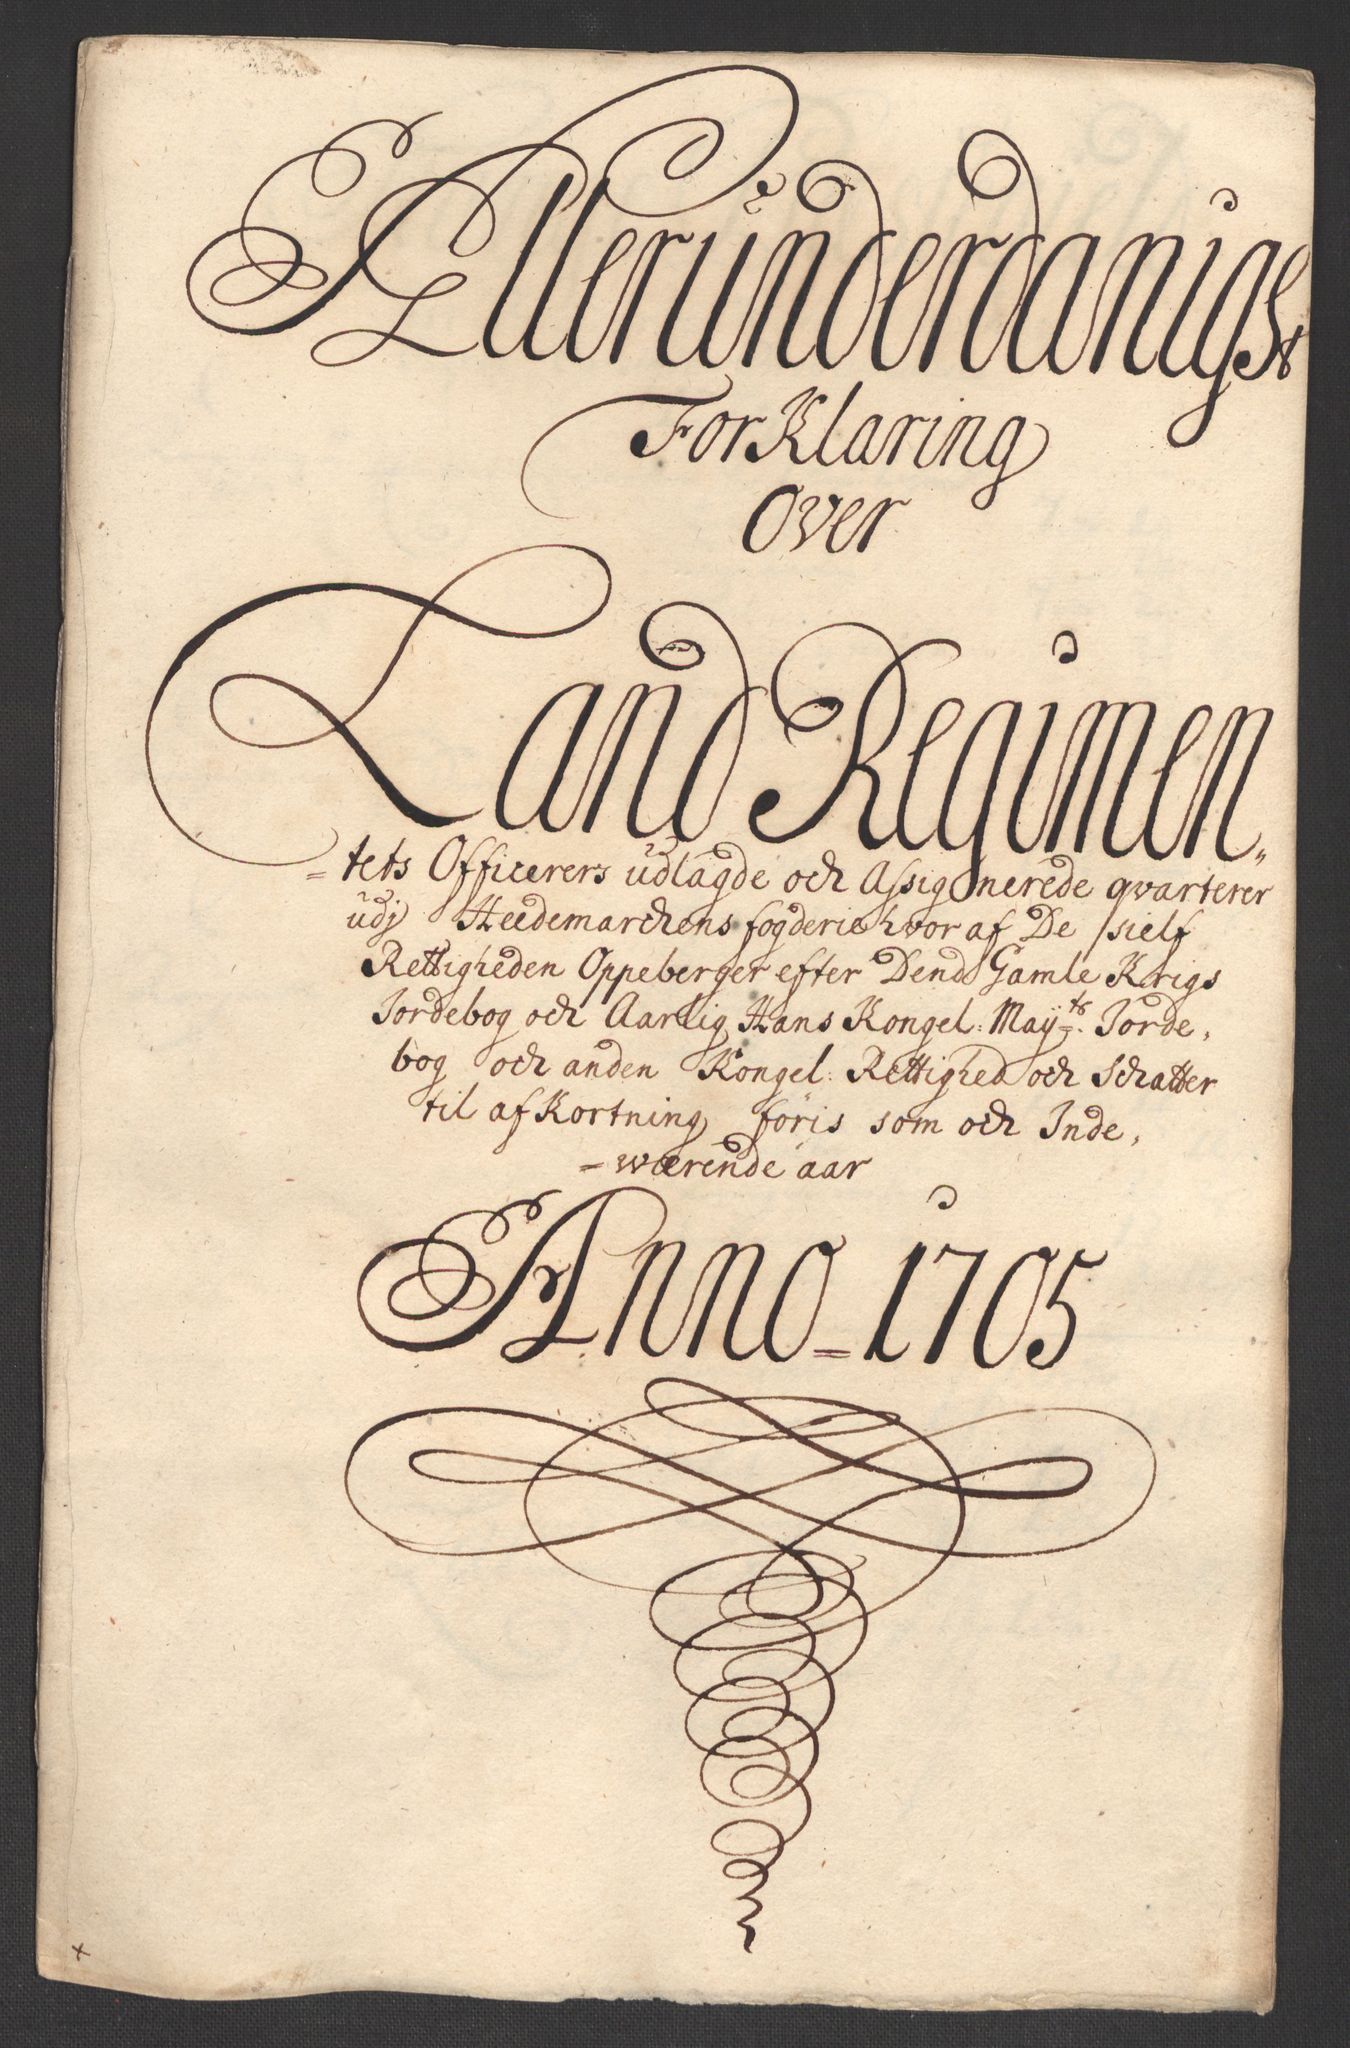 Allerunderdanigst
ForKlaring
Over
Land Regimen„
=tets Officerers udlagde och Assignerede qvarterer
udj Heedemarchens fogderie hvor af De sielf
Rettigheden Oppeberger efter Dend Gamle Krigs
Jordebog och Aarlig Hans Kongel: Mayts: Jorde,
bog och anden Kongel: Rettighed och Schatter
til afKortning föris som och Inde,
=wærende aar
Anno=1705